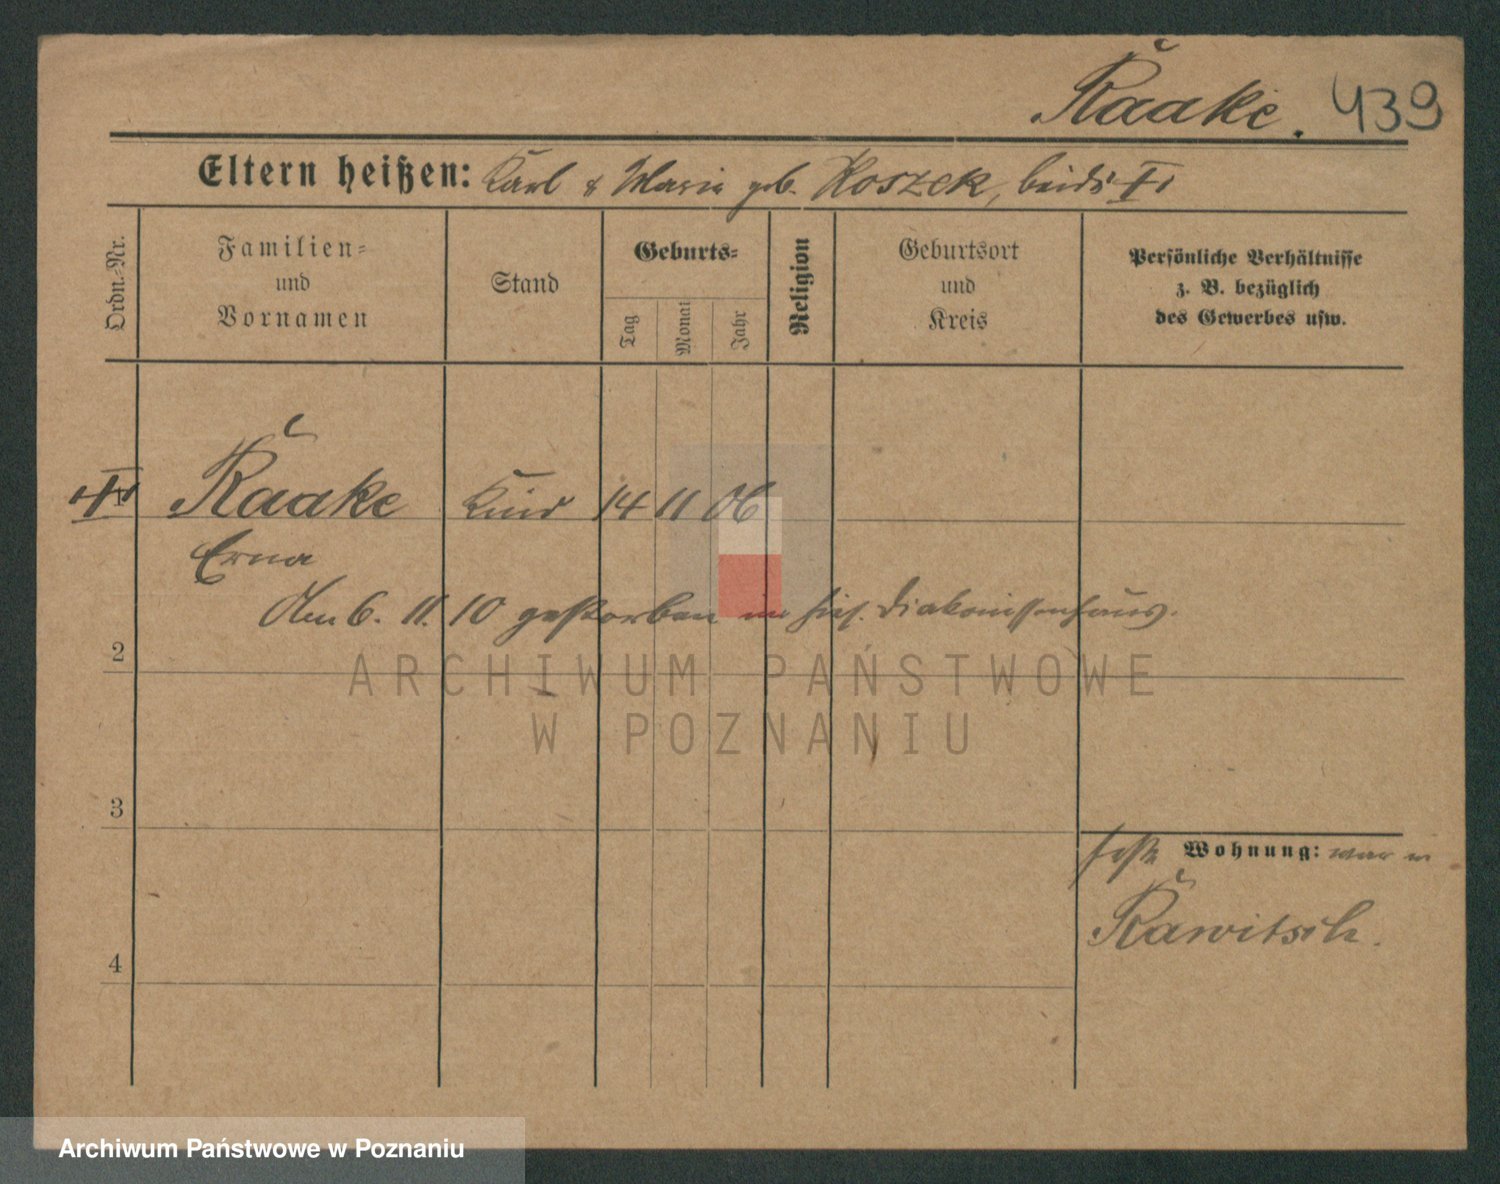 Raake. 439
Eltern heißen: Karl & Maria geb. Koszek, beide
Ordn.-Nr.
Familien-
und
Vornamen
Stand
Geburts-
Tag
Monat
Jahr
Religion
Geburtsort
und
Kreis
Persönliche Verhältnisse
z. B. bezüglich
des Gewerbes usw.
1 Raake Kind 14 11 06
Erna
Am 6. 11. 10 gestorben im hies. Diakonissenhaus.
2
ARCHIWUM PAŃSTWOWE
W POZNANIU
3
feste Wohnung: war in
Rawitsch.
4
Archiwum Państwowe w Poznaniu